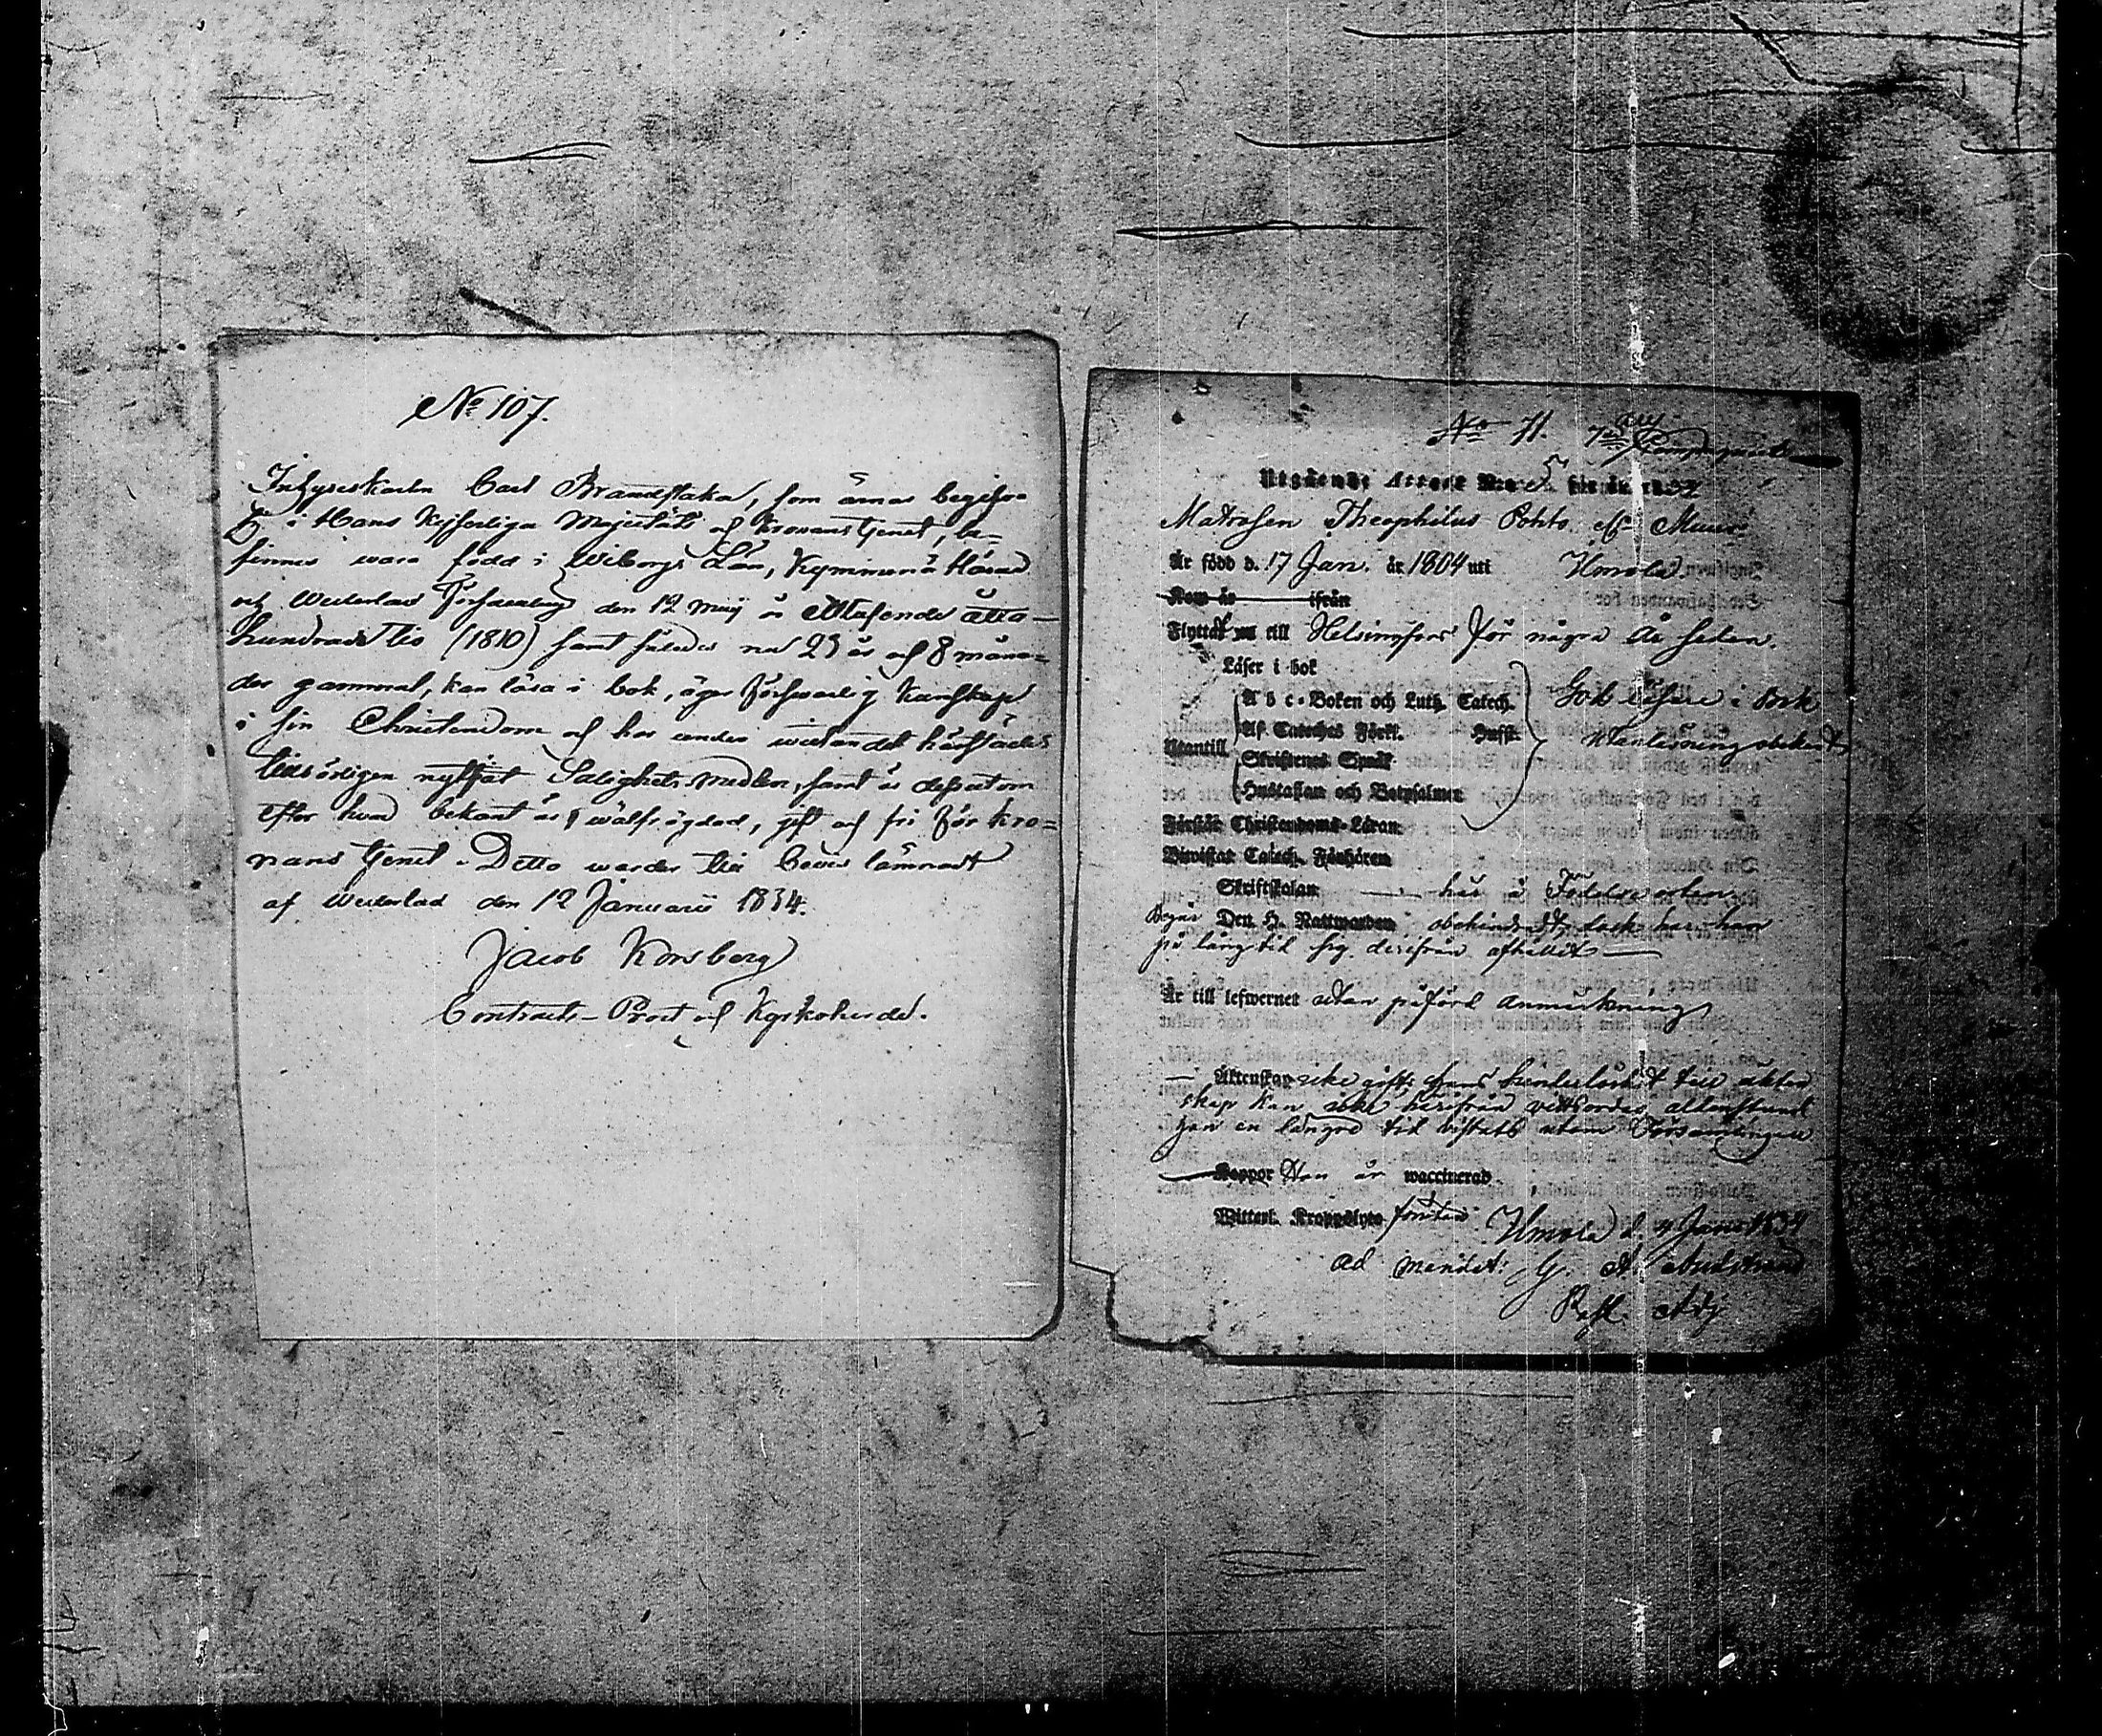 No 107.
Inhyseskarln Carl Brandstaka, som ärnar begifva
sig i Hans Kejserliga Majestäts och Kronans tjenst, be-
finnes wara född i Wiborgs Län, Kymmene Härad
och Wederlax Församling den 12 Maij år Ettusende åtta-
hundrade tio (1810) samt således nu 23 år och 8 måna-
der gammal, kan läsa i bok, äger försvarlig kunskap
i sin Christendom och har under wistandet härstädes
tidsörligen nyttjat Salighets-medlen, samt är dessutom
efter hvad bekant är wälfrägdad, gift och fri för Kro-
nans tjenst. Detta warder till bewis lämnadt
af Wederlax den 12 Januarii 1834.
Jacob Korsberg
Contracts-Prost och Kyrkoherde.
No 71. 7de Compagniet
Utgående Attest No 5 för år 1834
Matrosen Theophilus Pohto
Är född d. 17 Jan. år 1804 uti Urmola.
Kom år ifrån
Flyttat till Helsingfors för några år sedan.
Läser i bok
A b c-Boken och Luth. Catech. God läsare i bok
Utantill Af Cateches Förkl. Husst. Utanläsning obekant
Skriftenes Språk
Hustaflan och Botpsalmer
Förstår Christendoms-Läran
Biwistat Catech. Förhören
Skriftskolan här å Födelse orten
Begår Den H. Nattwarden obehindradt, dock har han
på lång tid sig derifrån afhållit
Är till lefwernet utan påförd anmärkning
Äktenskap icke gift; hans hinderlöshet till äkten
skap kan icke härifrån vittsordas, allenstund
han en längre tid vistats utom Församlingen
Koppor Han är waccinerad
Witterl. Kroppslyte d. 4 Jan. 1834
ad mandat: G. A.
Past. Adj.